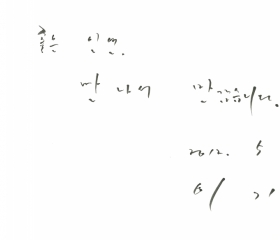 좋은 인연.
만나서 반갑습니다.
2012. 5